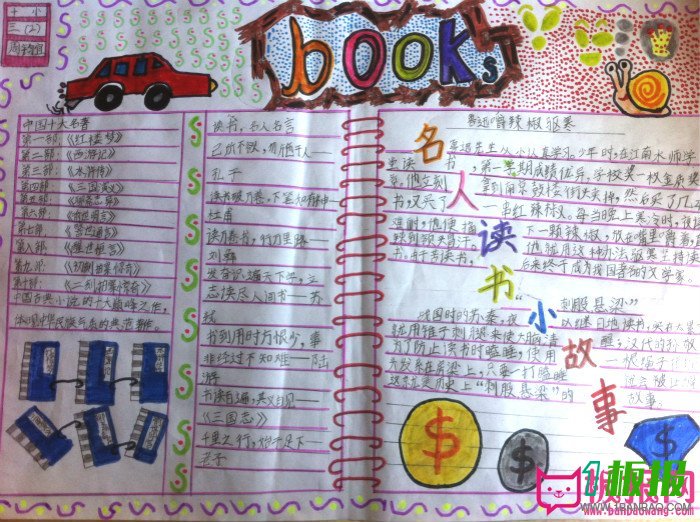 十小
三(2)
books
中国十大名著
第一部:《红楼梦》
第二部:《西游记》
第三部:《水浒传》
第四部:《三国演义》
第五部:
第六部:
第七部:《警世通言》
第八部:《醒世恒言》
第九部:《初刻拍案惊奇》
第十部:《二刻拍案惊奇》
中国古典小说的十大巅峰之作,
体现中华民族气质的典范著作。
读书,名人名言
己所不欲,勿施于人——
孔子
读书破万卷,下笔如有神——
杜甫
读万卷书,行万里路——
刘彝
发奋识遍天下字,立
志读尽人间书——苏
轼
书到用时方恨少,事
非经过不知难——陆
游
书读百遍,其义自见——
《三国志》
千里之行,始于足下——
老子
名人读书小故事
鲁迅嚼辣椒驱寒
鲁迅先生从小认真学习。少年时,在江南水师学
堂读书,第一学期成绩优异,学校奖一枚金质奖
章,他立刻拿到南京鼓楼街头卖掉,然后买了几本
书,又买了一串红辣椒。每当晚上寒冷时,夜读
难耐,他便摘下一颗辣椒,放在嘴里嚼着,
辣得额头冒汗。他就用这种办法驱寒坚持读
书。由于苦读书,后来终于成为我国著名的文学家。
“刺股悬梁”
战国时的苏秦,夜以继日地读书,实在太累了,
就用锥子刺腿来使大脑清醒;汉代的孙敬
为了防止读书时瞌睡,使用一根绳子
这就是历史上“刺股悬梁”的故事。
$
$
$
板报网
www.banbaowang.com